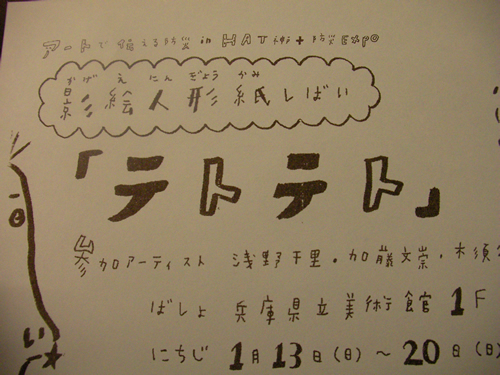 アートで伝える防災 in HAT神戸+防災Expo
かげ え にん ぎょう かみ
影絵人形紙しばい
「テトテト」
参加アーティスト 浅野千里・加藤文崇・木須
ばしょ 兵庫県立美術館 1F
にちじ 1月13日(日)～20日(日)
い